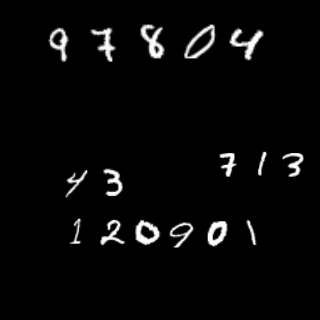 97804
713
43
120901